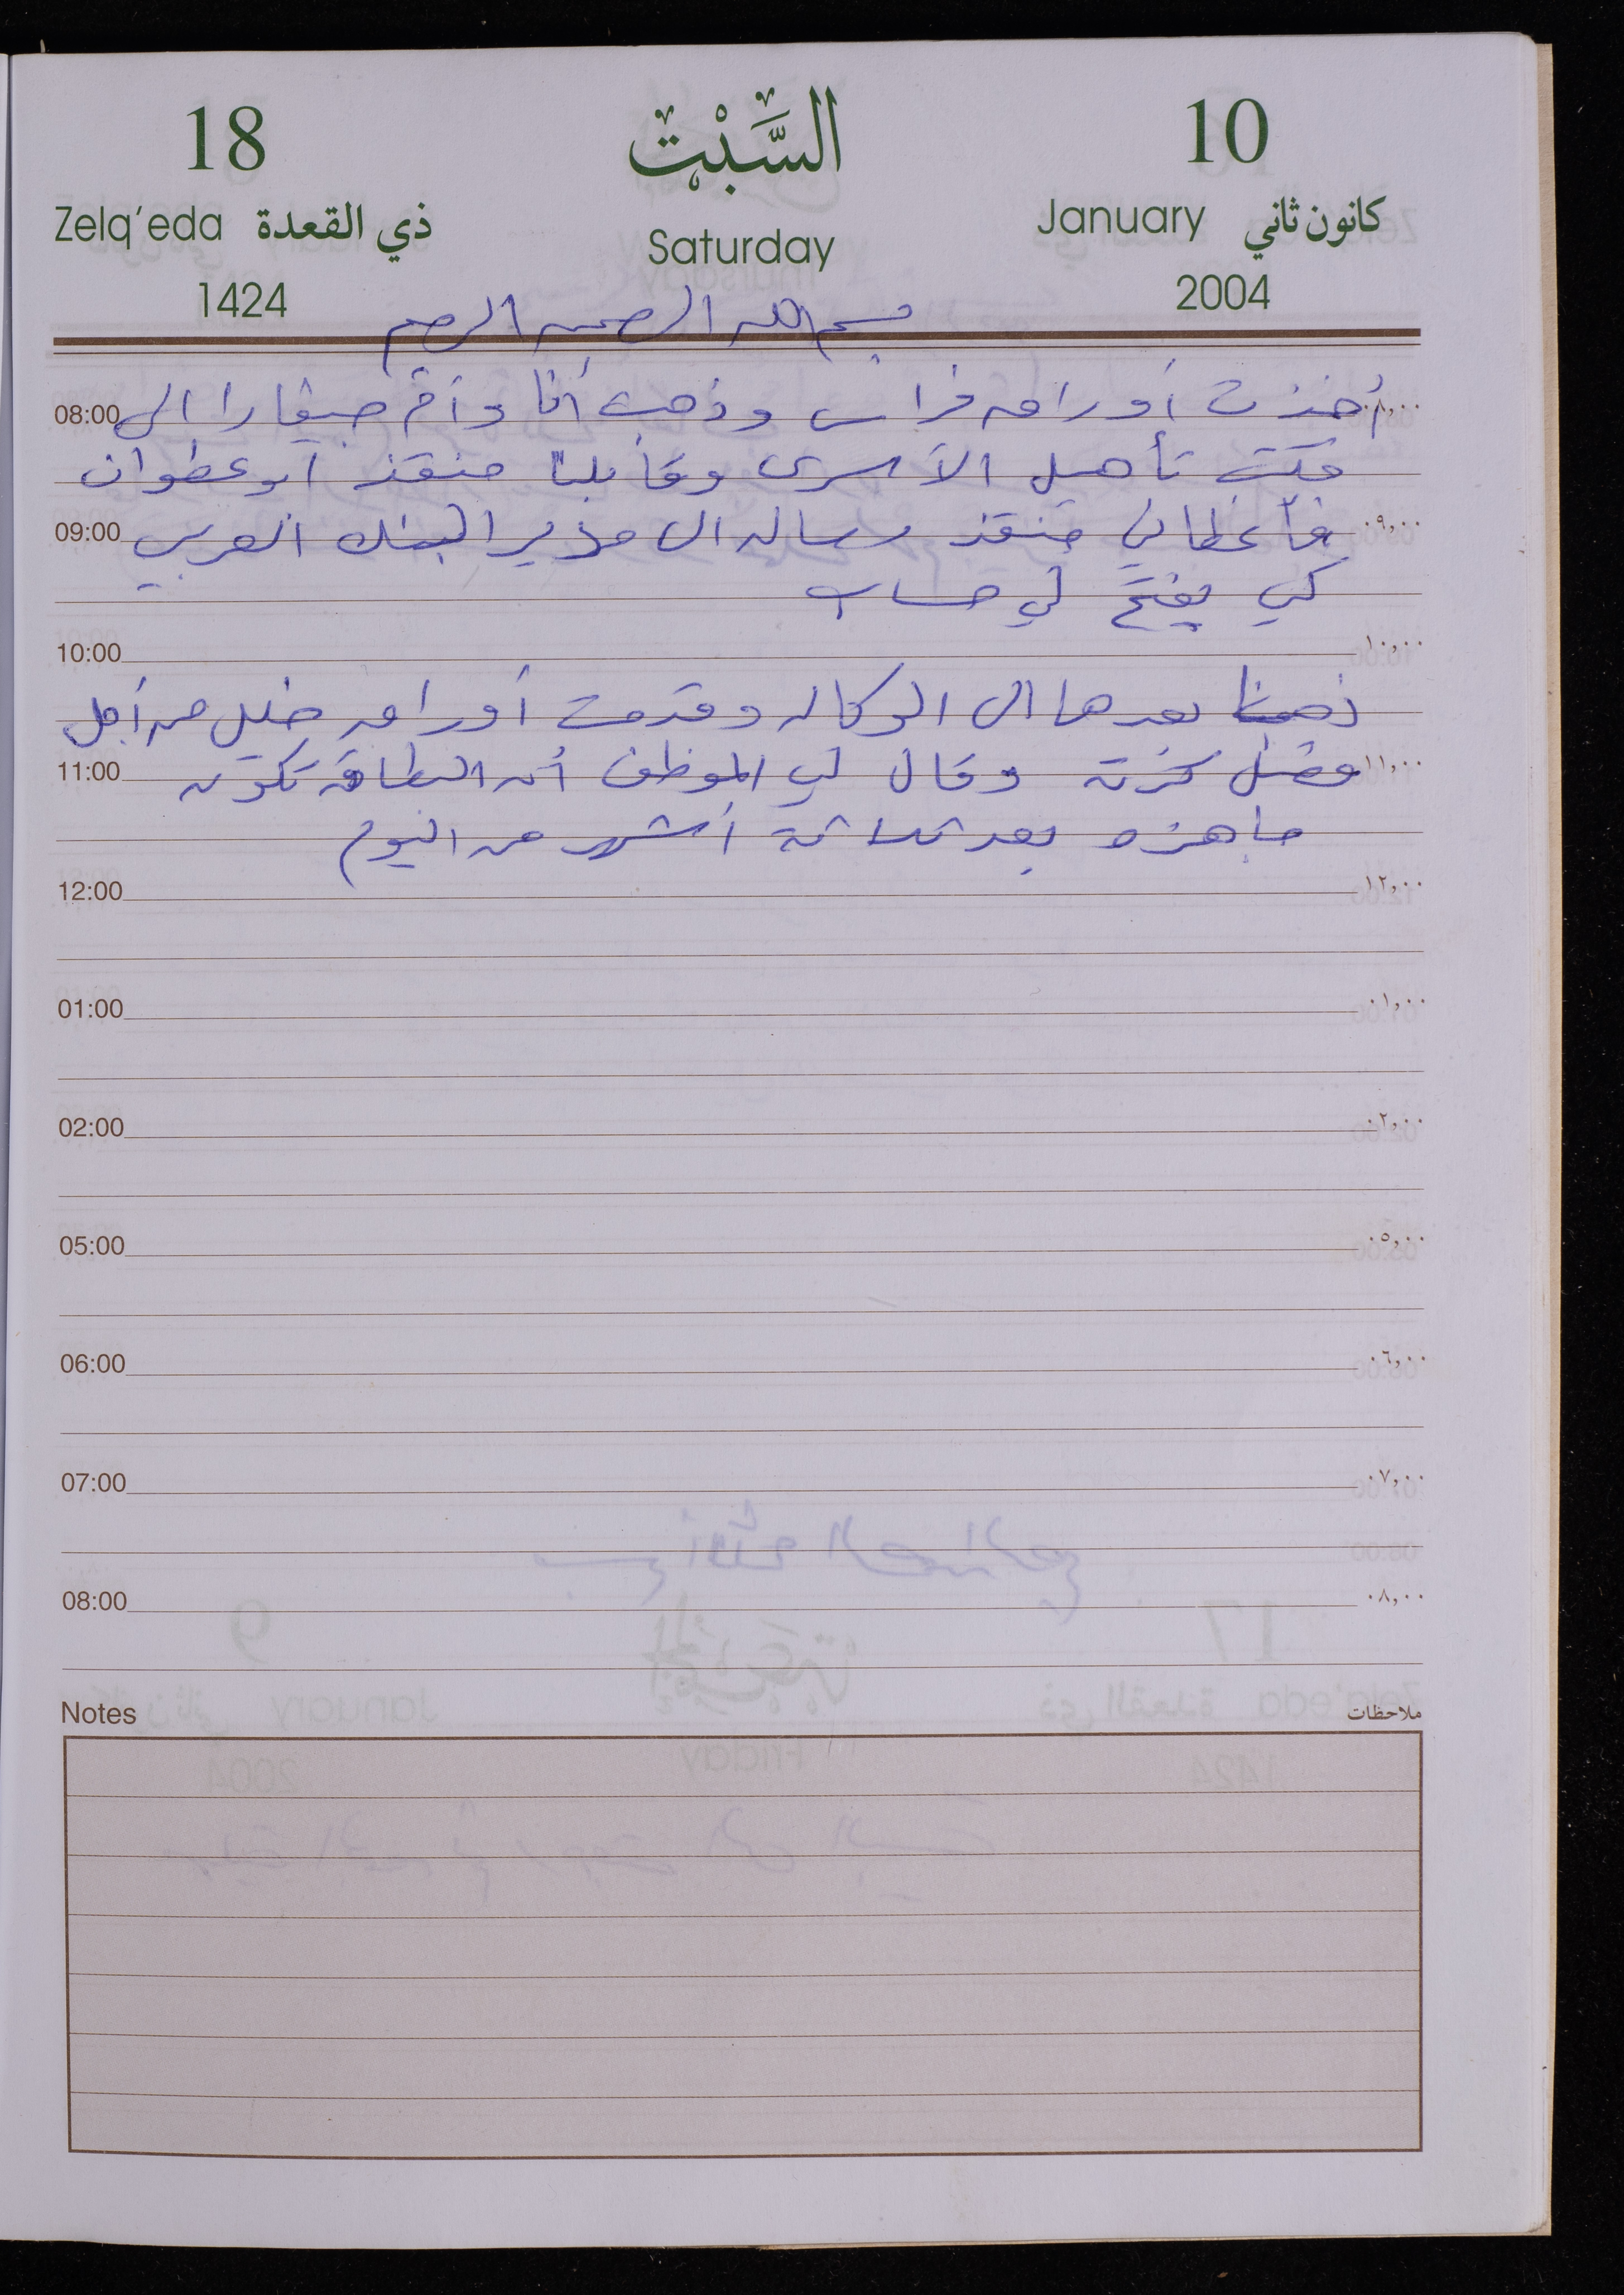 18 السَّبْت 10
Zelq'eda ذي القعدة Saturday January كانون ثاني
1424 2004
بسم الله الرحمن الرحيم
08:00 أخذت أوراق فراس وذهبت أنا وأم صيفا را الى ٠٨,٠٠
مكتب تأهيل الأسرى وقابلنا منقذ أبو عطوان
09:00 فأعطاني منقذ رساله الى مدير البنك العربي ٠٩,٠٠
كي يفتح لي حساب
10:00 ١٠,٠٠
ذهبنا بعدها الى الوكاله وقدمت أوراق خليل من أجل
11:00 فصل كرته وقال لي الموظف أن البطاقة تكون ١١,٠٠
جاهزه بعد ثلاثة أشهر من اليوم
12:00 ١٢,٠٠
01:00 ٠١,٠٠
02:00 ٠٢,٠٠
05:00 ٠٥,٠٠
06:00 ٠٦,٠٠
07:00 ٠٧,٠٠
08:00 ٠٨,٠٠
Notes ملاحظات